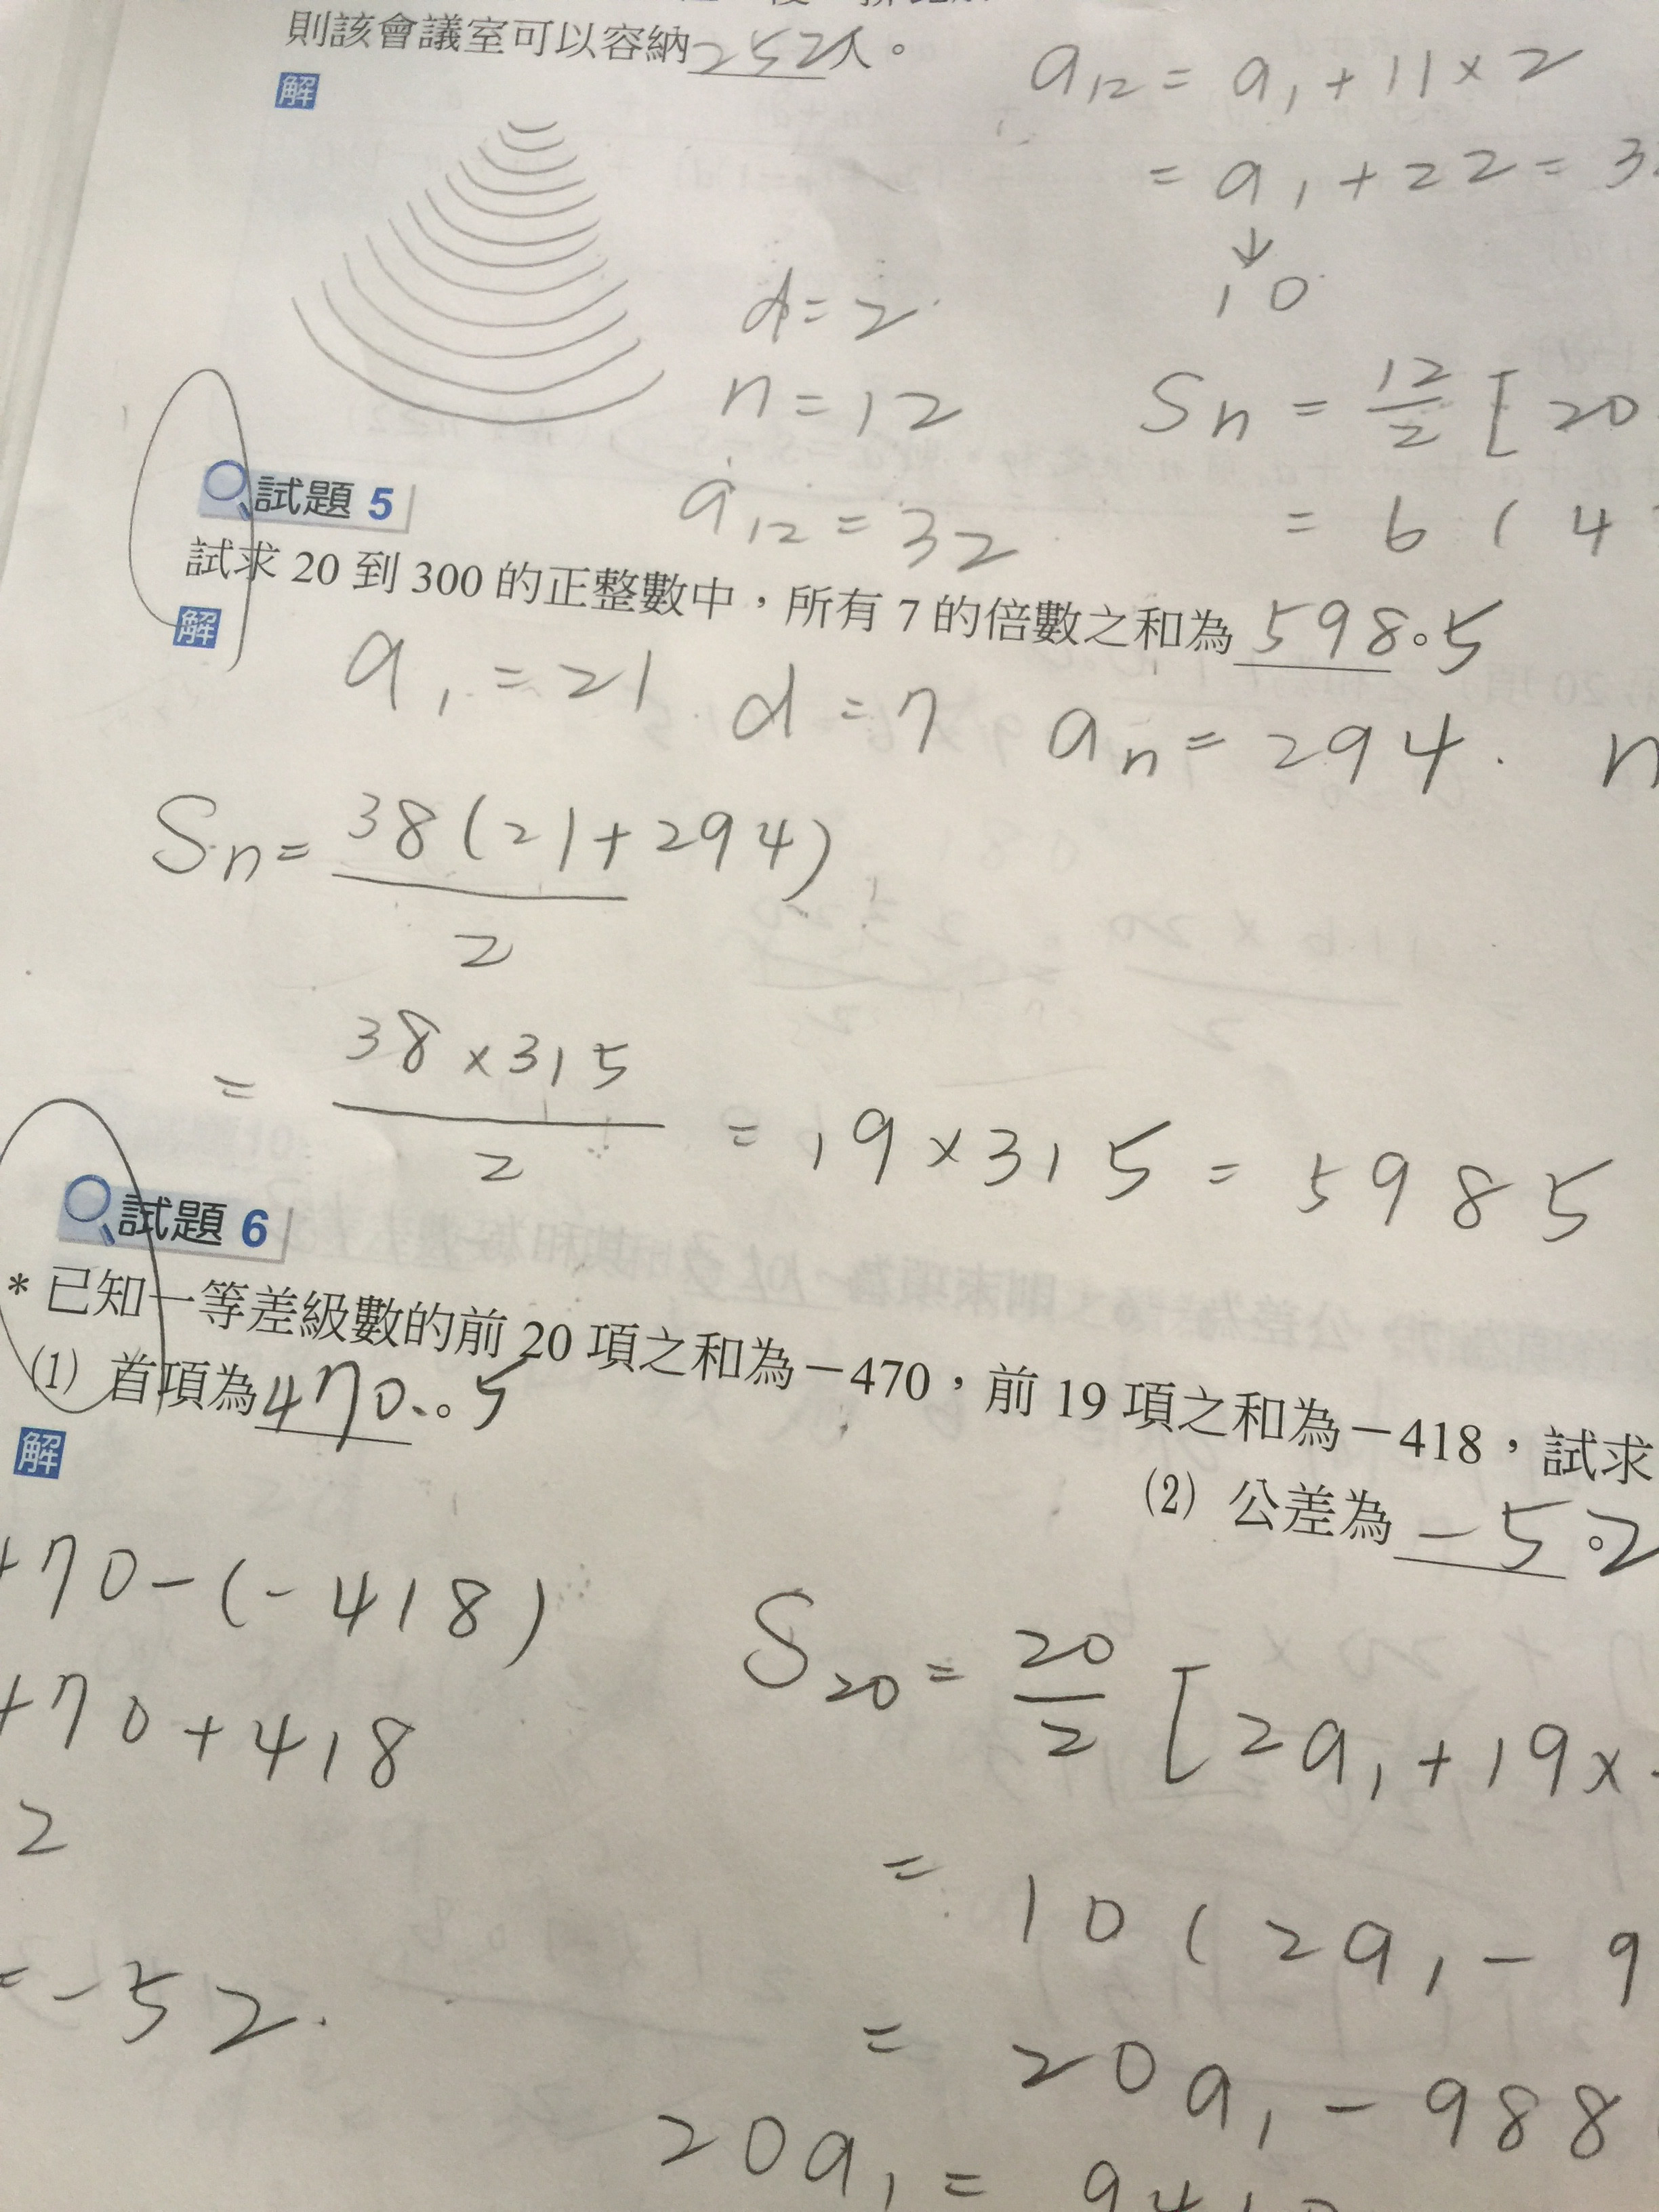 則該會議室可以容納252人。
解
a12 = a1 + 11 × 2
= a1 + 22 = 3
↓
10
d = 2
n = 12
a12 = 32
Sn = 12/2 [20
= 6 ( 4
試題 5
試求 20 到 300 的正整數中，所有 7 的倍數之和為 598。5
解
a1 = 21 d = 7 an = 294. n
Sn = 38(21+294)
2
= 38×315
2
= 19×315 = 5985
試題 6
* 已知一等差級數的前 20 項之和為－470，前 19 項之和為－418，試求
(1) 首項為470.。5
(2) 公差為 －5。2
解
70－(－418)
70+418
2
=－52.
S20 = 20/2 [2a1+19×
= 10(2a1－9
= 20a1－988
20a1 =